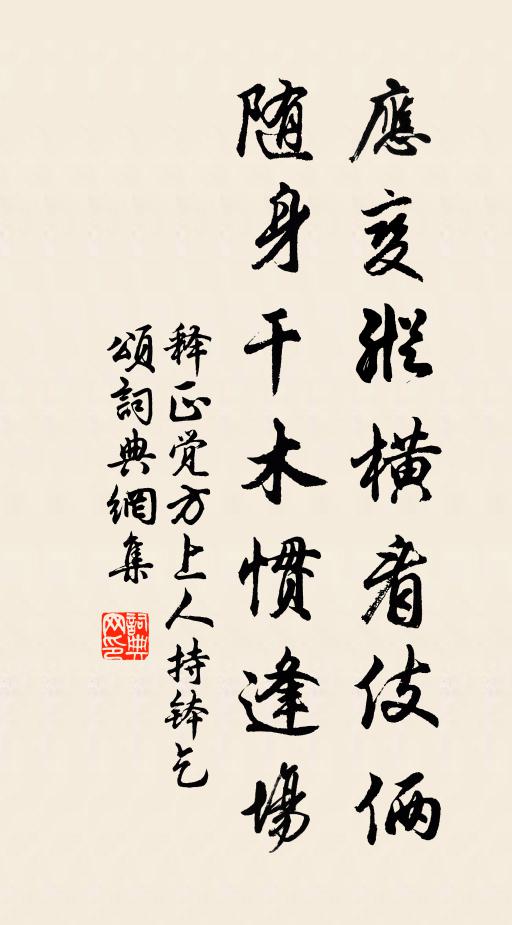 應变縱橫看伎俩
随身干木慣逢場
释正觉方上人持钵乞
頌詞典網集
詞典
网印